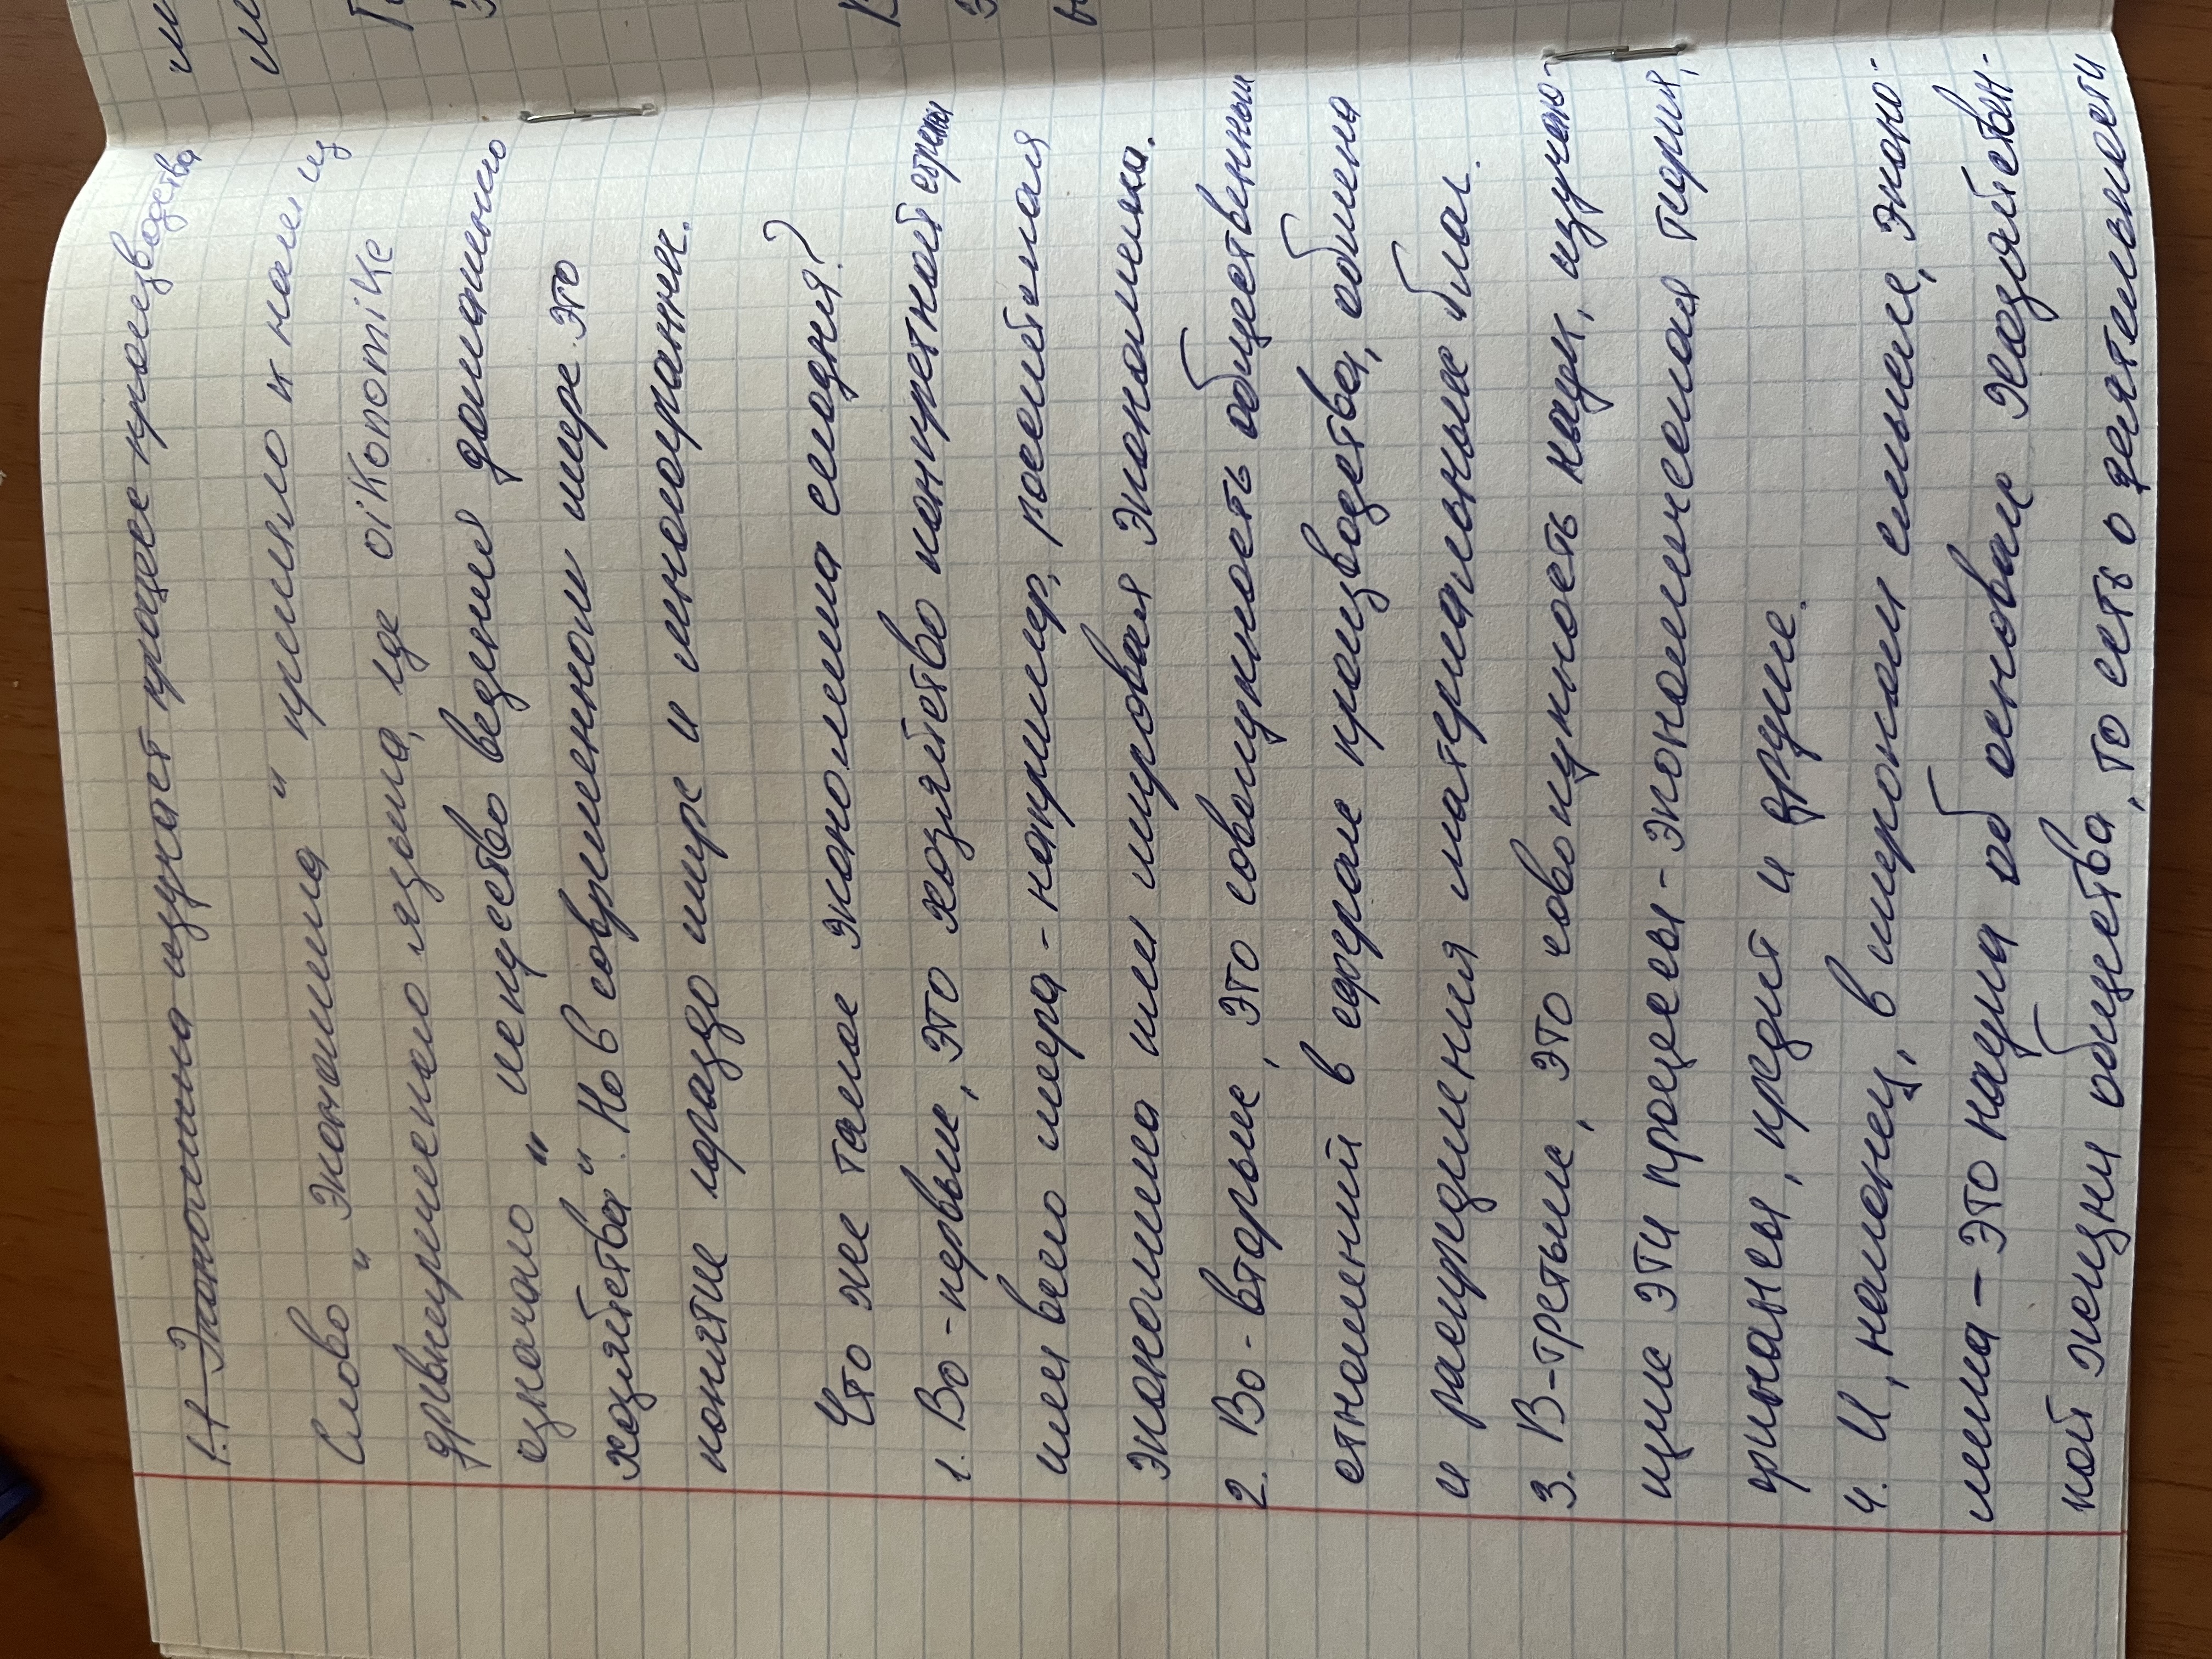 1.1 Экономика изучает процесс производства
Слово „Экономика" пришло к нам из
древнегреческого языка, где oikonomike
означало „искусство ведения домашнего
хозяйства". Но в современном мире это
понятие гораздо шире и многограннее.
Что же такое экономика сегодня?
1. Во-первых, это хозяйство конкретной страны
или всего мира - например, российская
экономика или мировая экономика.
2. Во-вторых, это совокупность общественных
отношений в сфере производства, обмена
и распределения материальных благ.
3. В-третьих, это совокупность наук, изучаю-
щие эти процессы - экономическая теория,
финансы, кредит и другие.
4. И, наконец, в широком смысле, эконо-
мика - это наука об основах хозяйствен-
ной жизни общества, то есть о деятельности